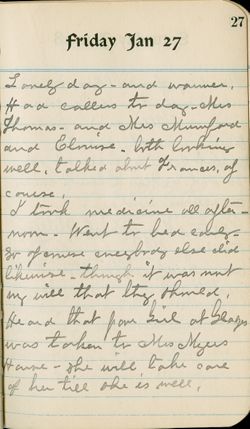 27
Friday Jan 27
Lovely day - and warmer.
Had callers to day - Mrs
Thomas - and Mrs Mumford
and Elouise - both looking
well, talked about Frances, of
course.
I took medicine all after-
noon - Went to bed early -
So of course everybody else did
likewise - though it was not
my will that they should.
Heard that poor girl at Gladys
was taken to Mrs Myers
Home - She will take care
of her till she is well.